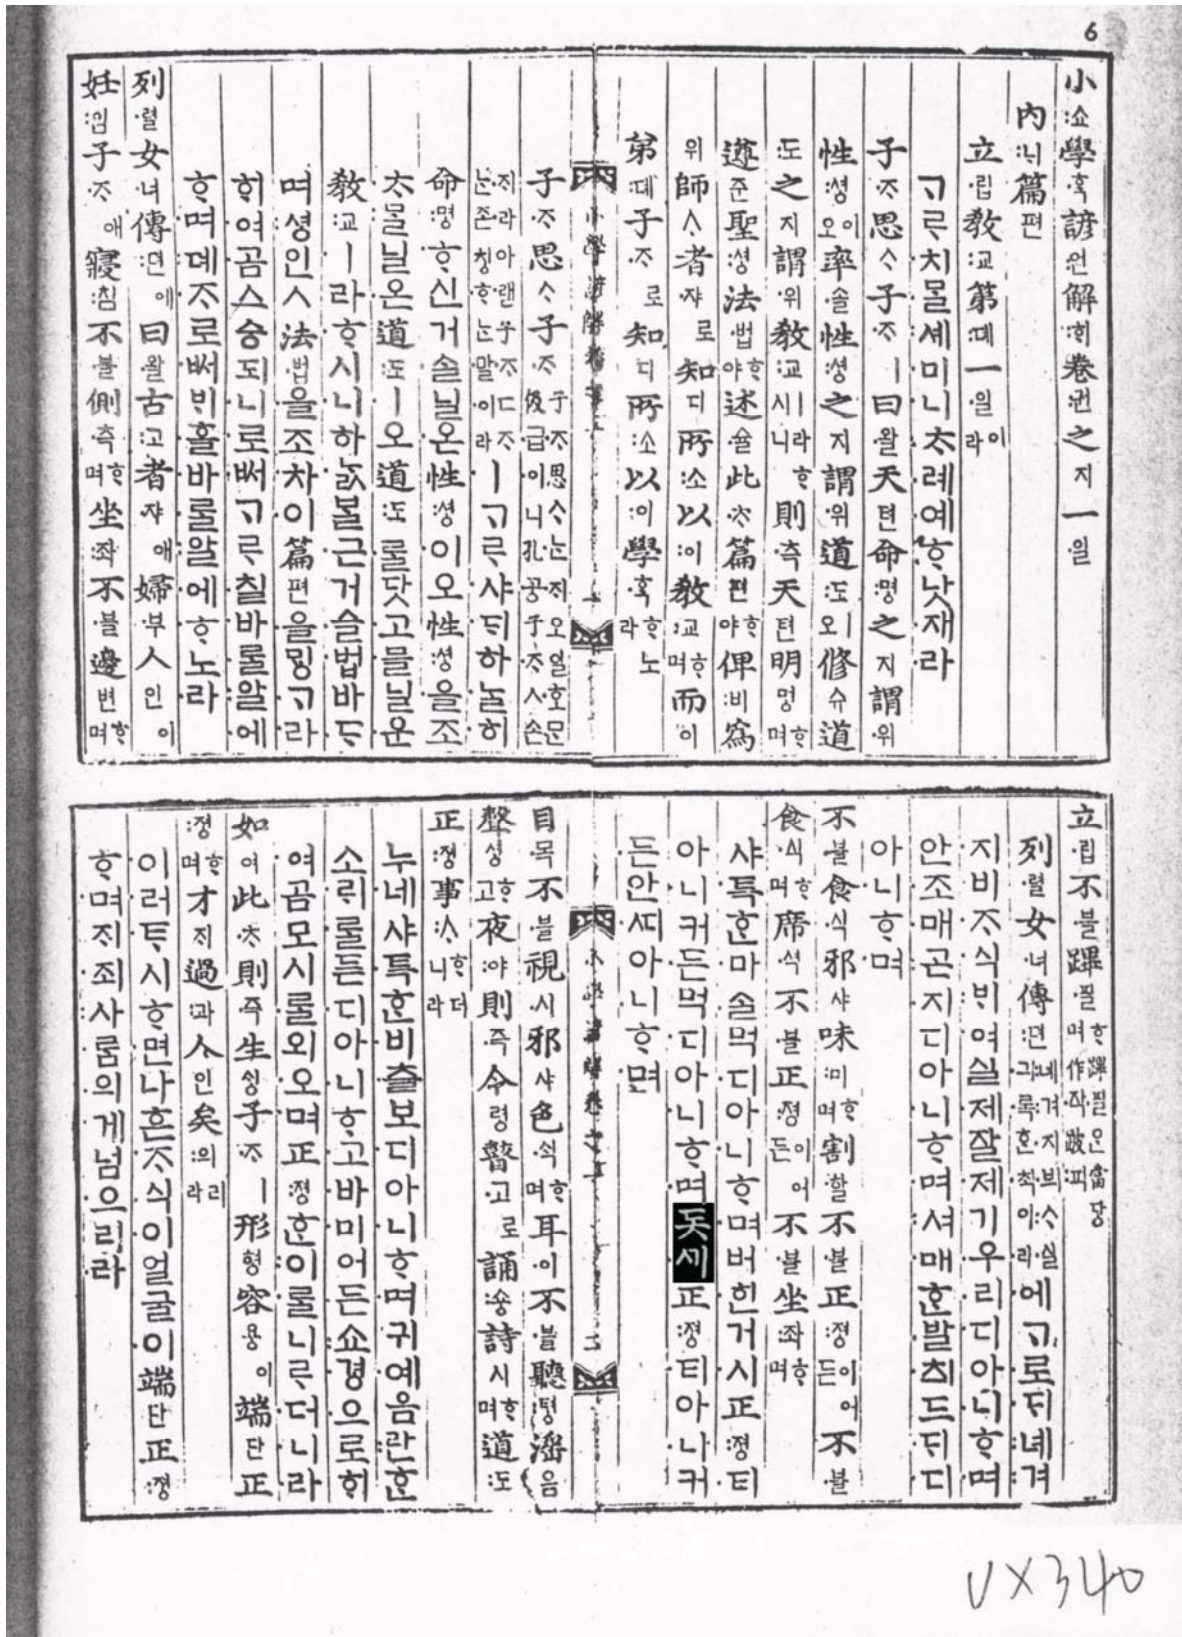 小쇼學ᄒᆞᆨ諺언解ᄒᆡ卷권之지一일
內ᄂᆡ篇편
立립敎교第뎨一일이라
ᄀᆞᄅᆞ치믈셰미니ᄎᆞ례예ᄒᆞ낫재라
子ᄌᆞ思ᄉᆞ子ᄌᆞㅣ曰왈天텬命명之지謂위
性셩이오率솔性셩之지謂위道도ㅣ오修슈道
도之지謂위敎교ㅣ라ᄒᆞ시니則측天텬明명ᄒᆞ며
遵준聖셩法법ᄒᆞ야述슐此ᄎᆞ篇편ᄒᆞ야俾비爲
위師ᄉᆞ者쟈로知디所소以이敎교ᄒᆞ며而이
弟뎨子ᄌᆞ로知디所소以이學ᄒᆞᆨᄒᆞ노라
小學諺解卷之一 一
子ᄌᆞ思ᄉᆞ子ᄌᆞ子ᄌᆞ思ᄉᆞᄂᆞᆫᄌᆡ오일호믄伋급이니孔공子ᄌᆞㅅ손
ᄌᆡ라아랜子ᄌᆞㄷᄌᆞᄂᆞᆫ존칭ᄒᆞᄂᆞᆫ말이라ㅣᄀᆞᄅᆞ샤ᄃᆡ하ᄂᆞᆯ히
命명ᄒᆞ신거ᄉᆞᆯ닐온性셩이오性셩을조
ᄎᆞᄆᆞᆯ닐온道도ㅣ오道도ᄅᆞᆯ닷고ᄆᆞᆯ닐온
敎교ㅣ라ᄒᆞ시니하ᄂᆞᆳᄇᆞᆯᄀᆞᆫ거슬법바ᄃᆞ
며셩인ㅅ法법을조차이篇편을ᄆᆡᇰᄀᆞ라
ᄒᆡ여곰스승되니로ᄡᅥᄀᆞᄅᆞ칠바ᄅᆞᆯ알에
ᄒᆞ며뎨ᄌᆞ로ᄡᅥᄇᆡ홀바ᄅᆞᆯ알에ᄒᆞ노라
列렬女녀傳뎐에曰왈古고者쟈애婦부人인이
妊임子ᄌᆞ애寢침不블側측ᄒᆞ며坐좌不블邊변ᄒᆞ며
立립不블蹕필ᄒᆞ며蹕필은當당作작跛피
列렬女녀傳뎐녜겨지브ㅅ실긔록ᄒᆞᆫᄎᆡᆨ이라에ᄀᆞ로ᄃᆡ녜겨
지비ᄌᆞ식ᄇᆡ여실제잘제기우리디아니ᄒᆞ며
안조매ᄀᆞᆺᄋᆡ디아니ᄒᆞ며셔매ᄒᆞᆫ발츼드ᄃᆡ디
아니ᄒᆞ며
不블食식邪샤味미ᄒᆞ며割할不블正졍이어든不블
食식ᄒᆞ며席셕不블正졍이어든不블坐좌ᄒᆞ며
샤특ᄒᆞᆫ마ᄉᆞᆯ먹디아니ᄒᆞ며버힌거시正졍티
아니커든먹디아니ᄒᆞ며돗ᄭᅵ正졍티아니커
든안ᄯᅵ아니ᄒᆞ며
小學諺解卷之一 二
目목不블視시邪샤色ᄉᆡᆨᄒᆞ며耳이不블聽텽淫음
聲셩ᄒᆞ고夜야則즉令령瞽고로誦숑詩시ᄒᆞ며道도
正졍事ᄉᆞᄒᆞ더니라
누네샤특ᄒᆞᆫ비츨보디아니ᄒᆞ며귀예음란ᄒᆞᆫ
소ᄅᆡᄅᆞᆯ듣디아니ᄒᆞ고바미어든쇼경으로ᄒᆡ
여곰모시ᄅᆞᆯ외오며正졍ᄒᆞᆫ이ᄅᆞᆯ니ᄅᆞ더니라
如여此ᄎᆞ則즉生ᄉᆡᆼ子ᄌᆞㅣ形형容용이端단正
졍ᄒᆞ며才ᄌᆡ過과人인矣의리라
이러ᄐᆞ시ᄒᆞ면나ᄒᆞᆫᄌᆞ식이얼굴이端단正졍
ᄒᆞ며ᄌᆡ죄사ᄅᆞᆷ의게넘으리라
6
VX340